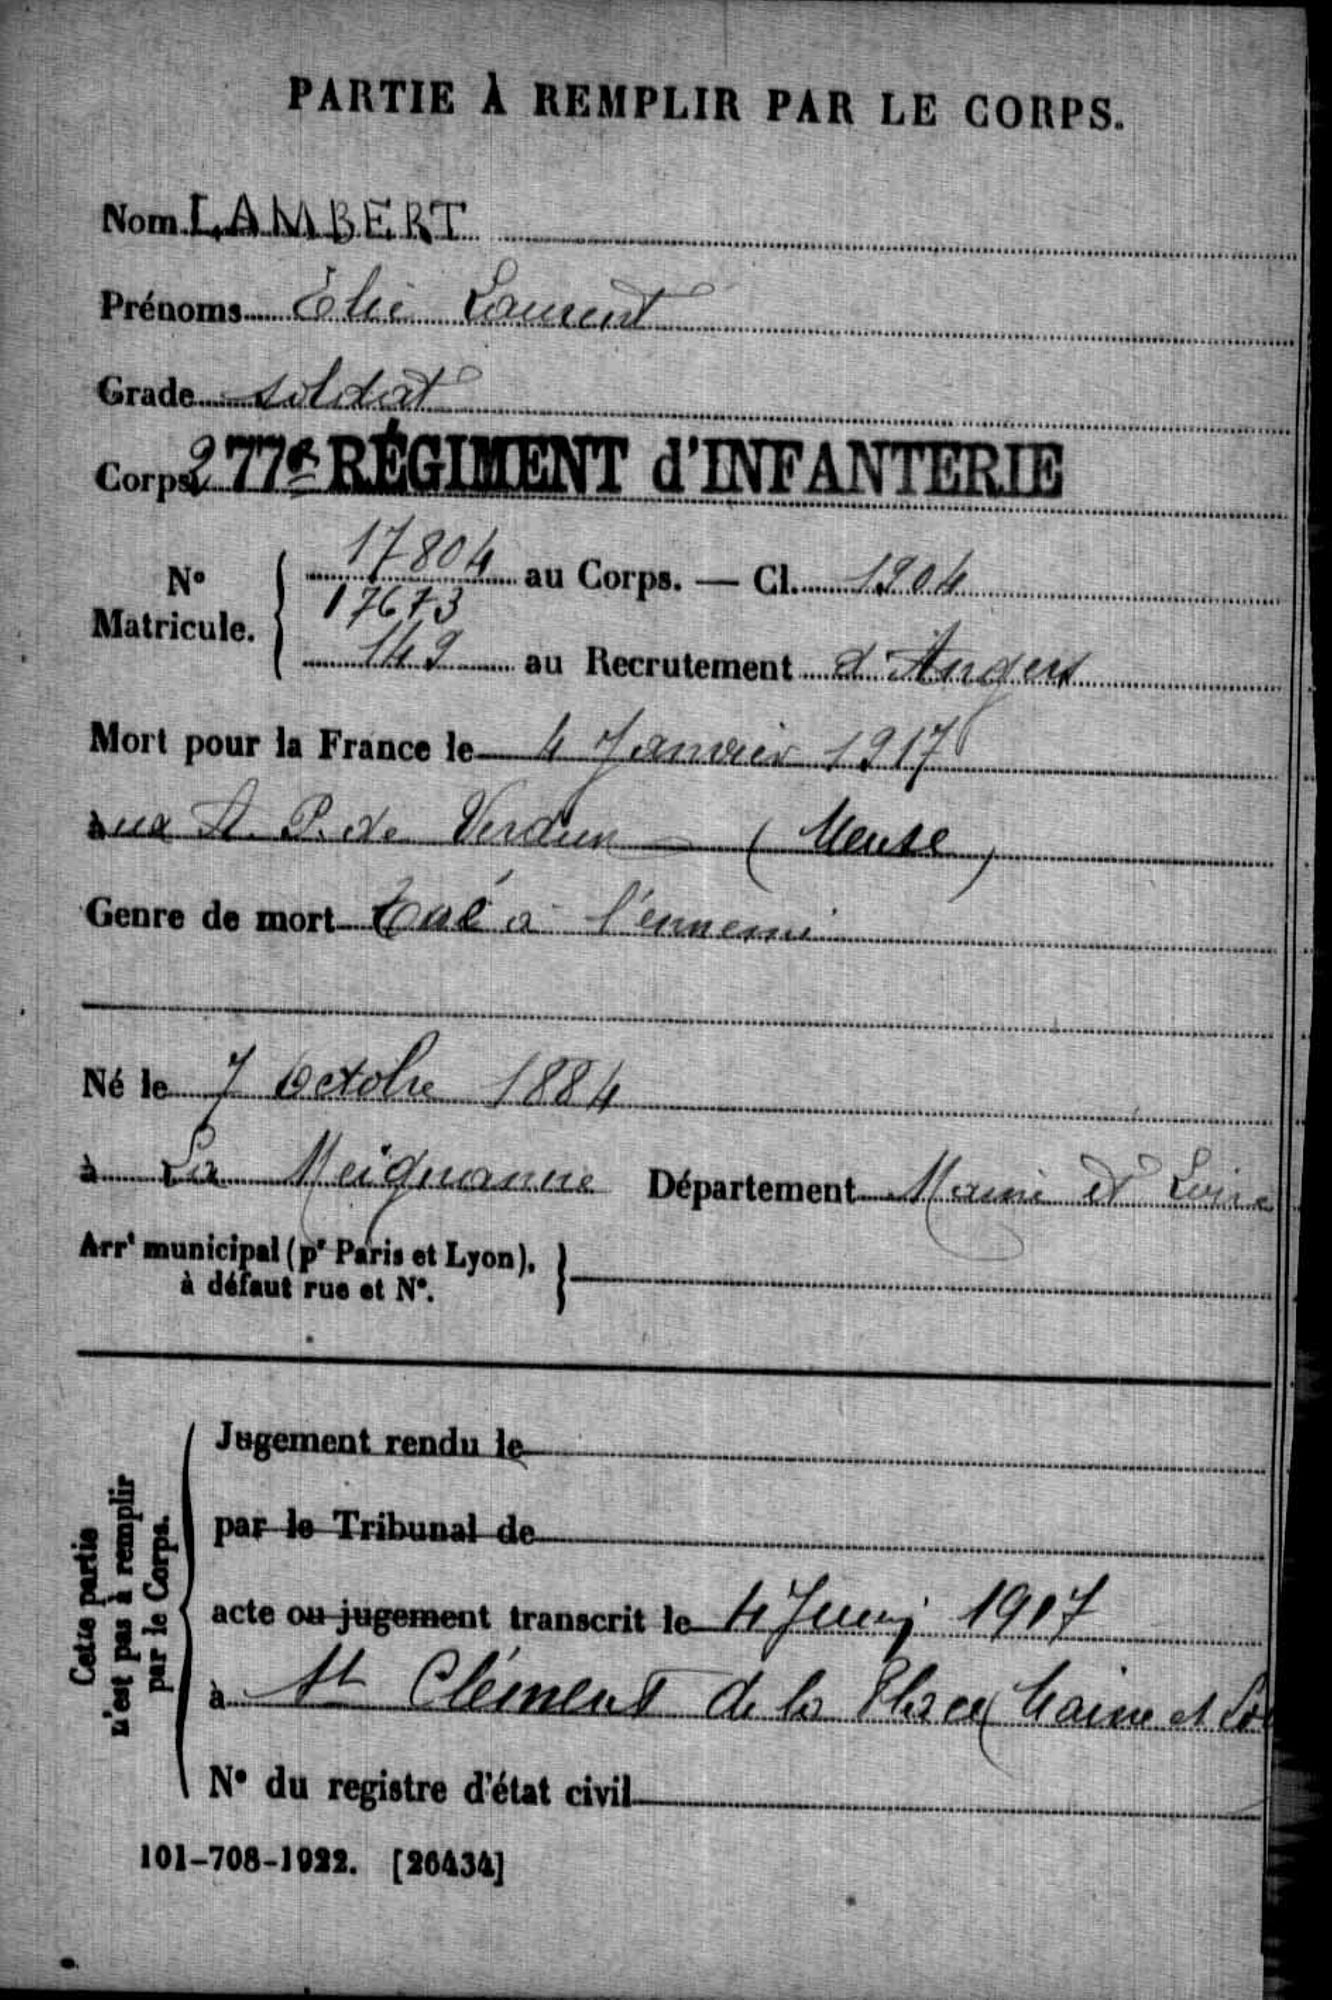 PARTIE À REMPLIR PAR LE CORPS.
Nom LAMBERT
Prénoms Elie Laurent
Grade soldat
Corps 277e RÉGIMENT d'INFANTERIE
17804 au Corps. — Cl. 1904
N° Matricule. 17673
149 au Recrutement d'Angers
Mort pour la France le 4 Janvier 1917
à Verdun (Meuse)
Genre de mort Tué à l'ennemi
Né le 7 Octobre 1884
à La Meignanne Département Maine et Loire
Arrt municipal (pr Paris et Lyon),
à défaut rue et N°.
Cette partie
n'est pas à remplir
par le Corps.
Jugement rendu le
par le Tribunal de
acte ou jugement transcrit le 4 Juin 1917
à St Clément de la Place (Maine et Loi
N° du registre d'état civil
101-708-1922. [26434]